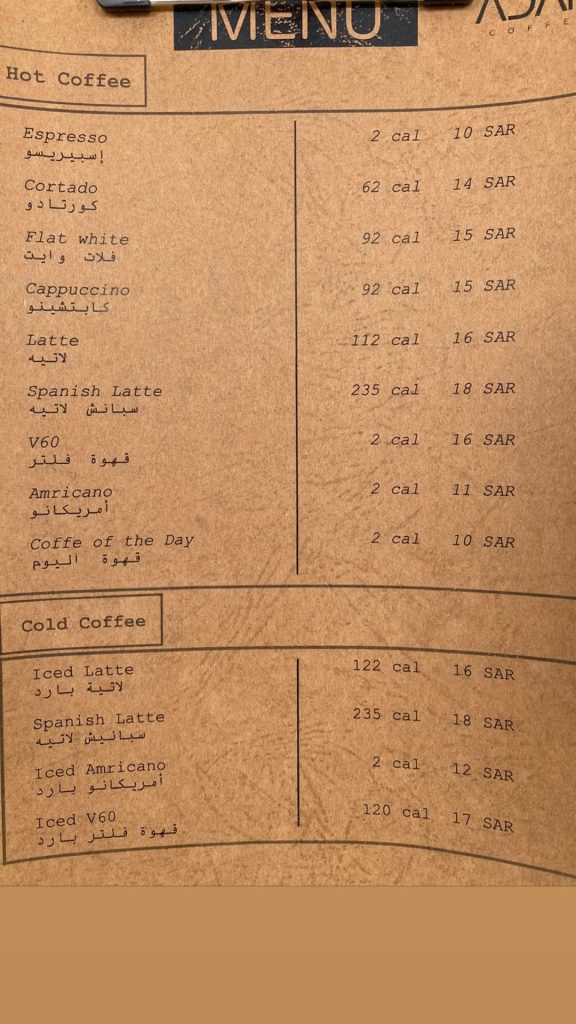 MENU
COFFE
Hot Coffee
Espresso 2 cal 10 SAR
إسبيريسو
Cortado 62 cal 14 SAR
كورتادو
Flat white 92 cal 15 SAR
فلات وايت
Cappuccino 92 cal 15 SAR
كابتشينو
Latte 112 cal 16 SAR
لاتيه
Spanish Latte 235 cal 18 SAR
سبانش لاتيه
V60 2 cal 16 SAR
قهوة فلتر
Amricano 2 cal 11 SAR
أمريكانو
Coffe of the Day 2 cal 10 SAR
قهوة اليوم
Cold Coffee
Iced Latte 122 cal 16 SAR
لاتية بارد
Spanish Latte 235 cal 18 SAR
سبانيش لاتيه
Iced Amricano 2 cal 12 SAR
أمريكانو بارد
Iced V60 120 cal 17 SAR
قهوة فلتر بارد